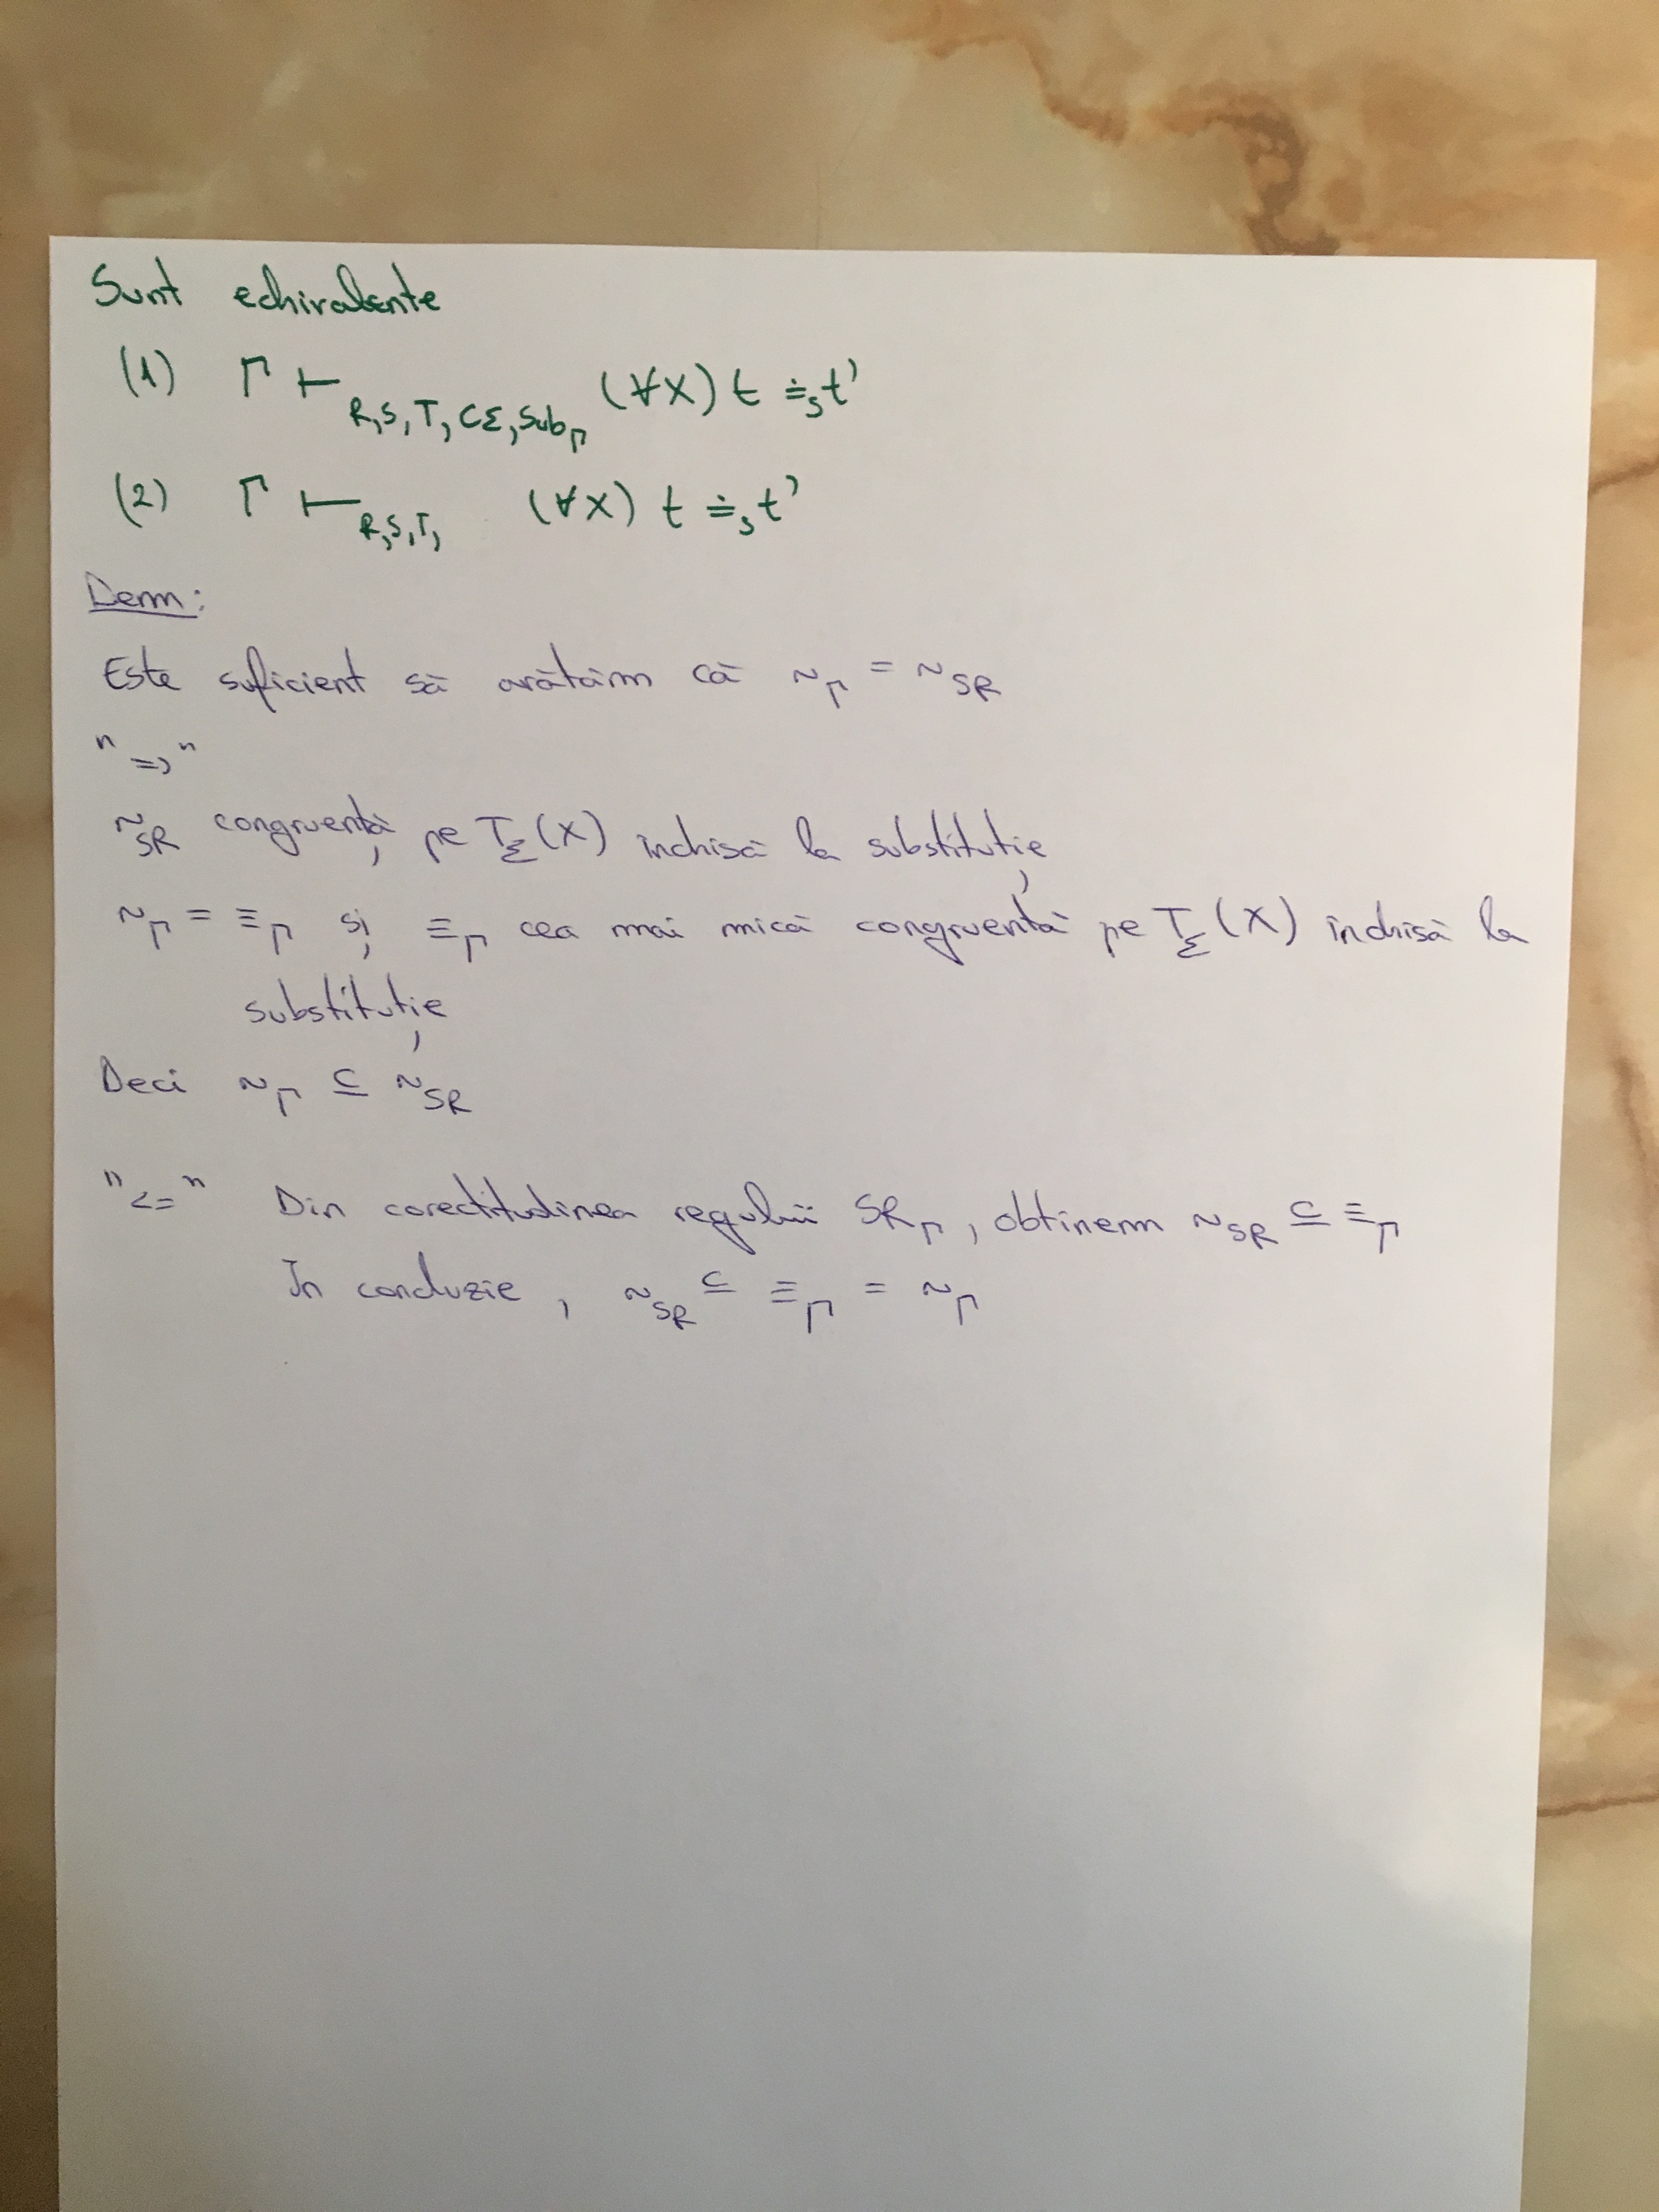 Sunt echivalente
(1) Γ ⊢ R,S,T,CΣ,Sub_Γ (∀X) t ≐_s t'
(2) Γ ⊢ R,S,T, (∀X) t ≐_s t'
Dem:
Este suficient să arătăm că ~_Γ = ~_SR
"=>"
~_SR congruență pe T_Σ(X) închisă la substituție
~_Γ = ≡_Γ și ≡_Γ cea mai mică congruentă pe T_Σ(X) închisă la
substituție
Deci ~_Γ ⊆ ~_SR
"<=" Din corectitudinea regulii SR_Γ, obtinem ~_SR ⊆ ≡_Γ
În concluzie, ~_SR ⊆ ≡_Γ = ~_Γ